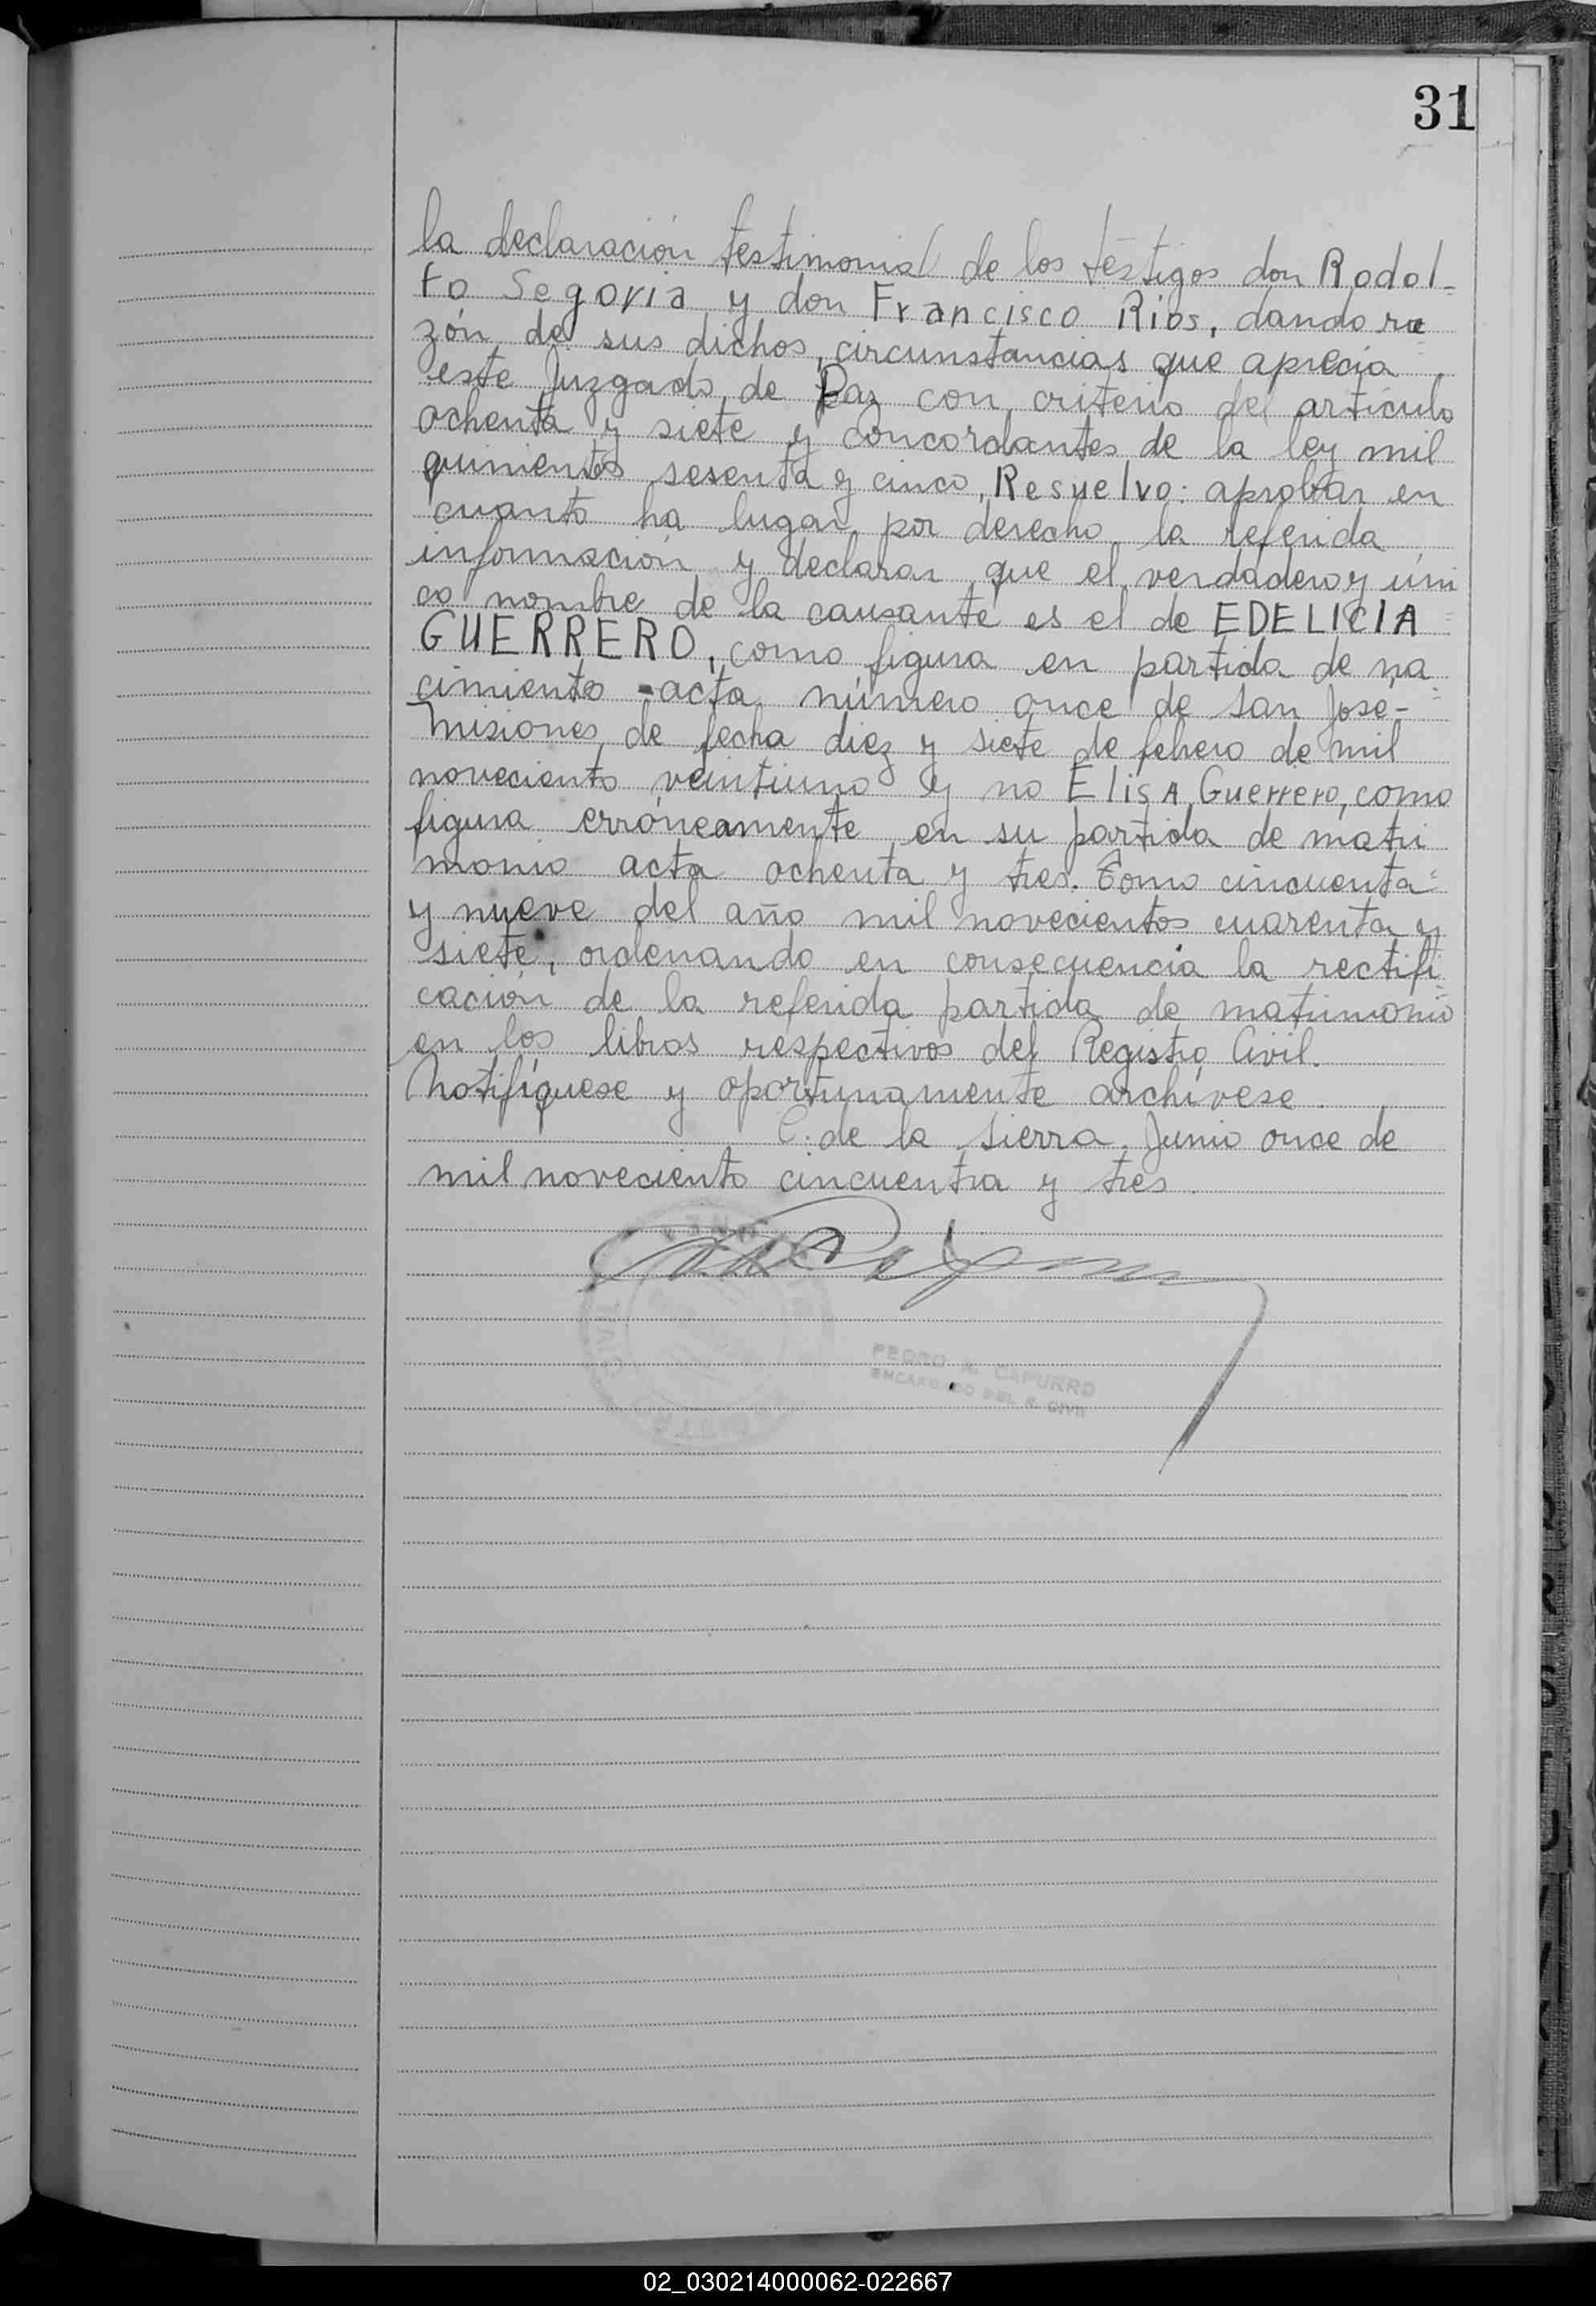 31
la declaración testimonial de los testigos don Rodol-
fo Segovia y don Francisco Ríos, dando ra
zón de sus dichos, circunstancias que aprecia
este Juzgado de Paz con criterio del artículo
ochenta y siete y concordantes de la ley mil
quinientos sesenta y cinco, Resuelvo: aprobar en
cuanto ha lugar por derecho la referida
información y declarar que el verdadero y úni
co nombre de la causante es el de EDELICIA
GUERRERO, como figura en partida de na
cimiento - acta número once de San José-
Misiones, de fecha diez y siete de febrero de mil
noveciento veintiuno y no Elisa Guerrero, como
figura erróneamente en su partida de matri
monio acta ochenta y tres. Tomo cincuenta
y nueve del año mil novecientos cuarenta y
siete, ordenando en consecuencia la rectifi
cación de la referida partida de matrimonio
en los libros respectivos del Registro Civil.
Notifíquese y oportunamente archívese.
C. de la Sierra, Junio once de
mil noveciento cincuenta y tres
PEDRO R. CAPURRO
ENCARGADO DEL R. CIVIL
02_030214000062-022667